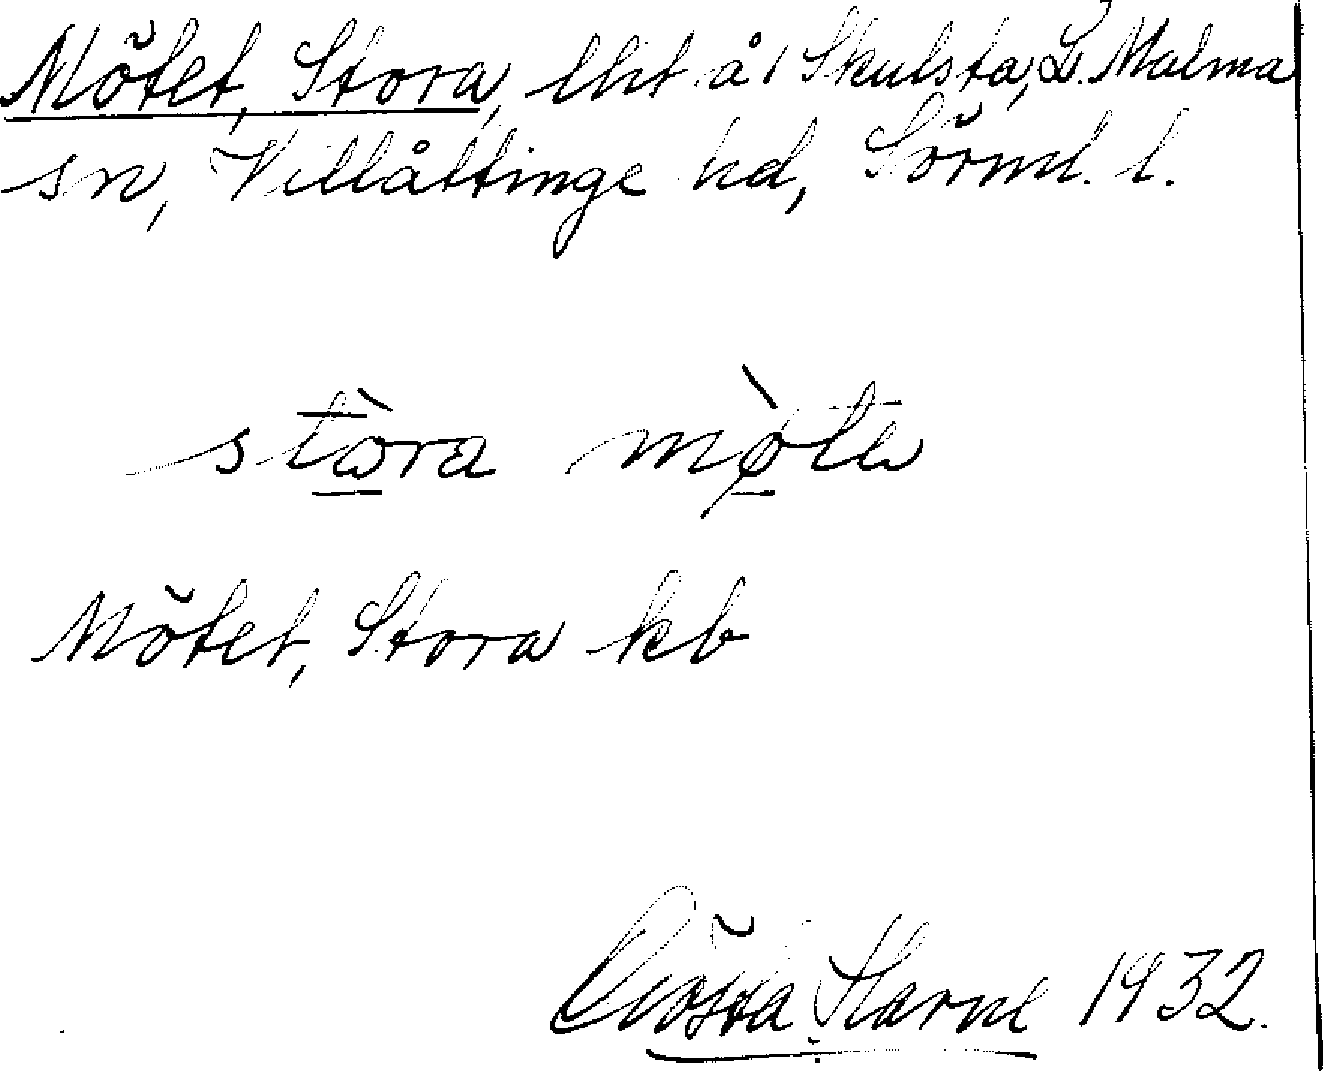 Mötet, Stora, lht å 1 Skulsta, L. Malma
sn, Villåttinge hd, Sörml. l.
stòra mø̀te
Mötet, Stora kb
Gösta Harne 1932.